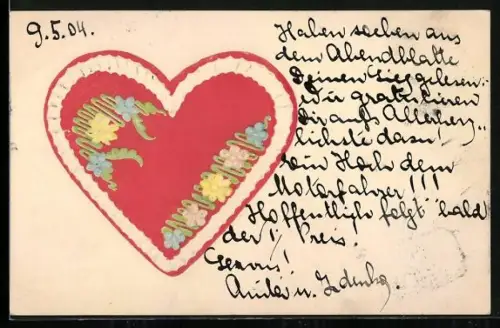 9.5.04.
Haben soeben aus
dem Abendblatte
Deinen Sieg gelesen.
Wir gratulieren
Dir aufs Allerherz„
lichste dazu!
ein Hoch dem
Motorfahrer!!!
Hoffentlich folgt bald
der 1/ Preis.
Servus!
u.